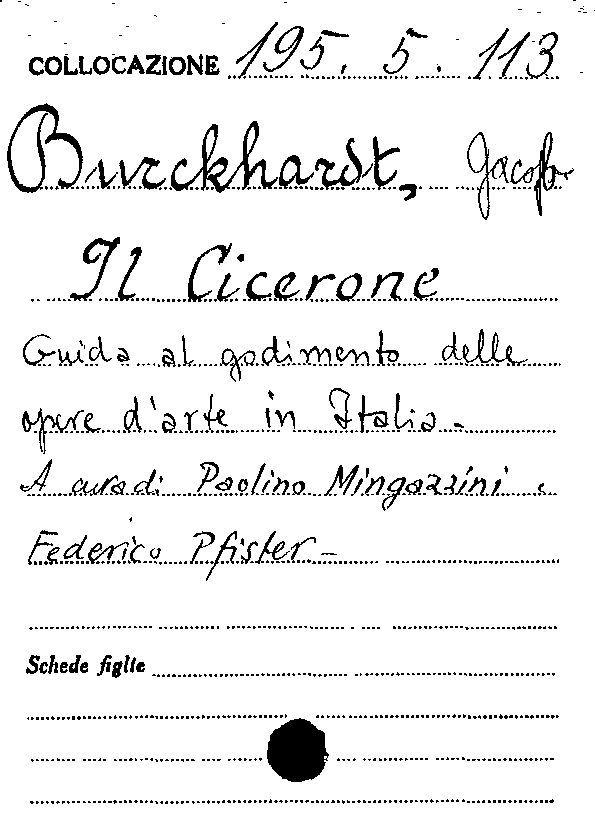 COLLOCAZIONE 195. 5. 113
Burckhardt, Jacopo
Il Cicerone
Guida al godimento delle
opere d'arte in Italia -
A cura di Paolino Mingazzini e
Federico Pfister -
Schede figlie